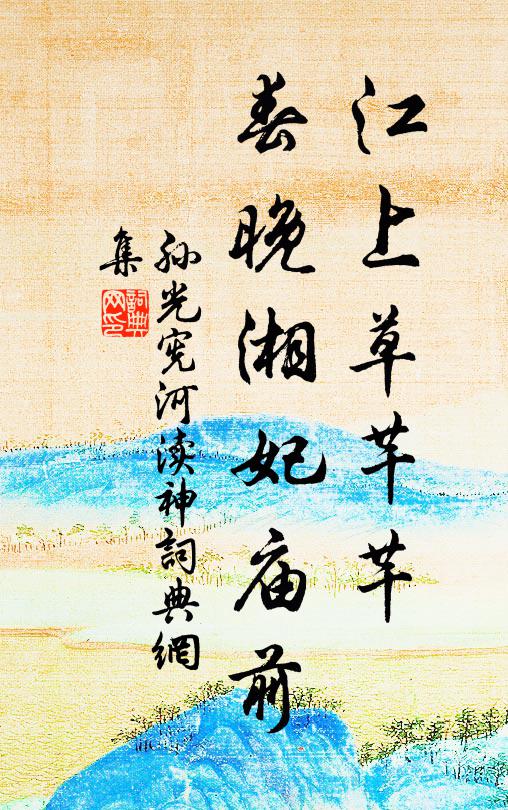 江上草芊芊
春晚湘妃庙前
孙光宪河渎神詞典網
集
詞典网印